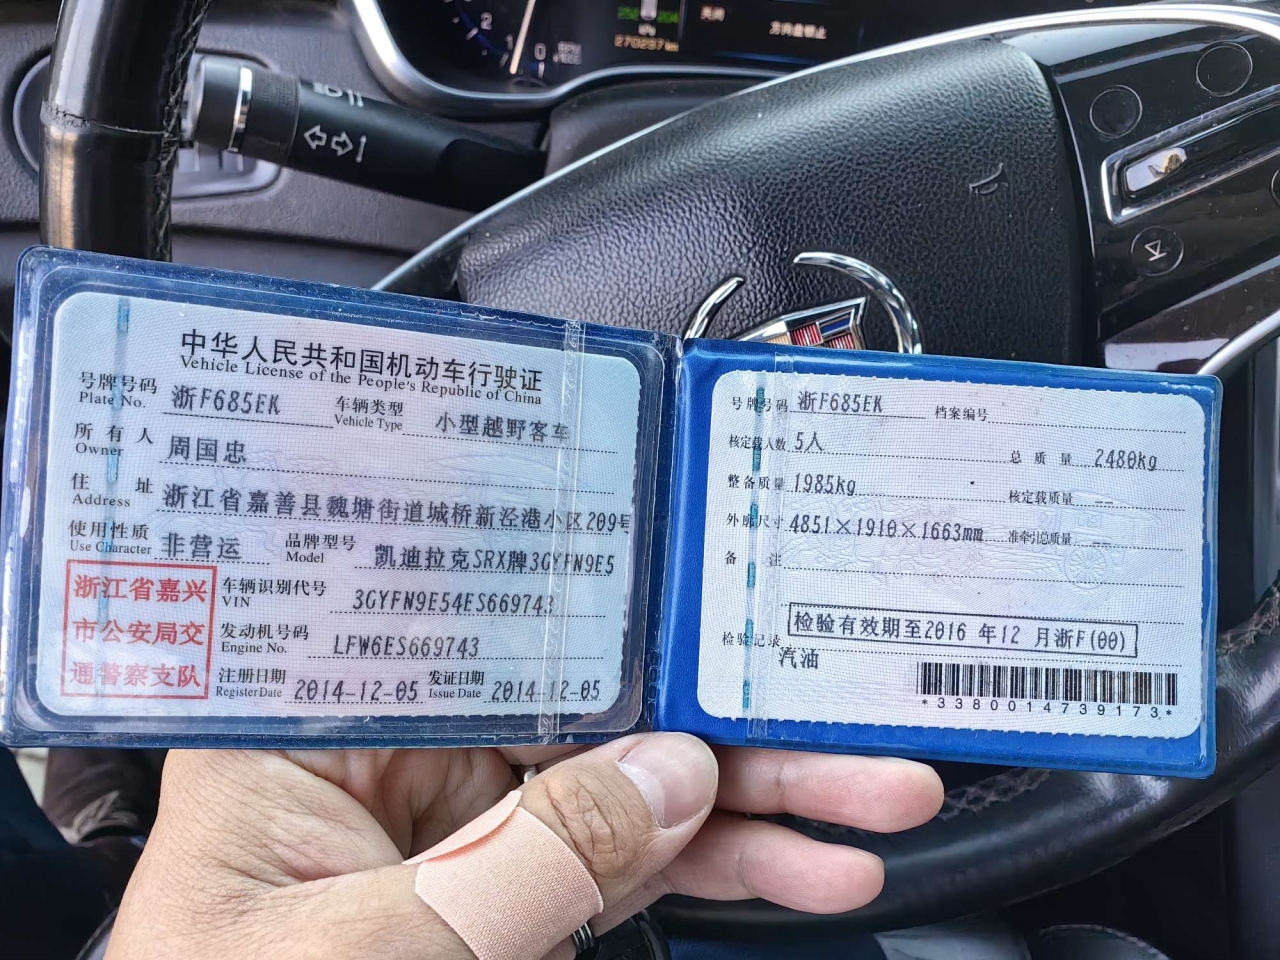 2
1
0
252
204
kPa
270297km
关闭
方向盘锁止
中华人民共和国机动车行驶证
Vehicle License of the People's Republic of China
号牌号码 浙F685EK 车辆类型 小型越野客车
Plate No. Vehicle Type
所有人 周国忠
Owner
住址 浙江省嘉善县魏塘街道城桥新泾港小区209号
Address
使用性质 非营运 品牌型号 凯迪拉克SRX牌3GYFN9E5
Use Character Model
浙江省嘉兴
市公安局交
通警察支队
车辆识别代号 3GYFN9E54ES669743
VIN
发动机号码 LFW6ES669743
Engine No.
注册日期 2014-12-05 发证日期 2014-12-05
Register Date Issue Date
号牌号码 浙F685EK 档案编号
核定载人数 5人 总质量 2480kg
整备质量 1985kg 核定载质量 --
外廓尺寸 4851×1910×1663mm 准牵引总质量 --
备注
检验有效期至2016 年12 月浙F(00)
检验记录
汽油
*3380014739173*